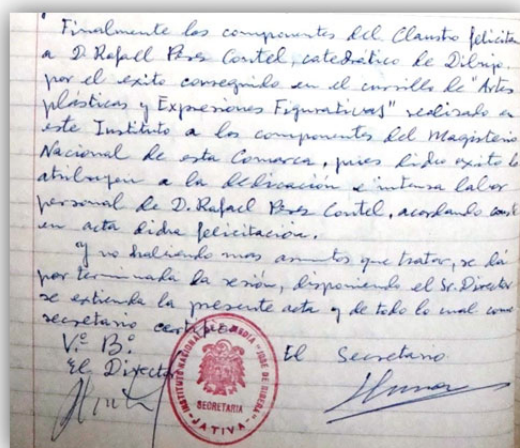 Finalmente los componentes del Claustro felicitan
a D. Rafael Pérez Contel, catedrático de Dibujo,
por el exito conseguido en el cursillo de "Artes
plásticas y Expresiones Figurativas" realizado en
este Instituto a los componentes del Magisterio
Nacional de esta Comarca, pues dicho exito lo
atribuyen a la dedicación e intensa labor
personal de D. Rafael Pérez Contel, acordando
en acta dicha felicitación.
Y no habiendo mas asuntos que tratar, se dá
por terminada la sesión, disponiendo el Sr. Director
se extienda la presente acta y de todo lo cual como
secretario certifico.
V.º B.º
El Director
El Secretario
INSTITUTO NACIONAL DE E. MEDIA "JOSE DE RIBERA"
SECRETARIA
JATIVA